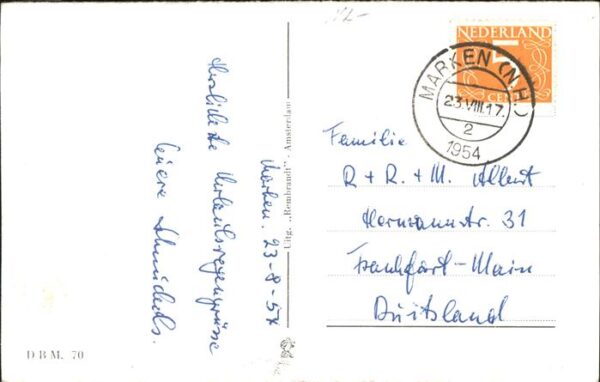 12.-
NEDERLAND
5
CENT
MARKEN (N.H.)
23.VIII.17.
2
1954
Marken. 23-8-54
Herzlichste Urlaubsregengrüsse
Eure
Familie
R + R. + M. Albert
Hermannstr. 31
Frankfort-Main
Duitsland
Uitg. „Rembrandt”. Amsterdam
D B M. 70